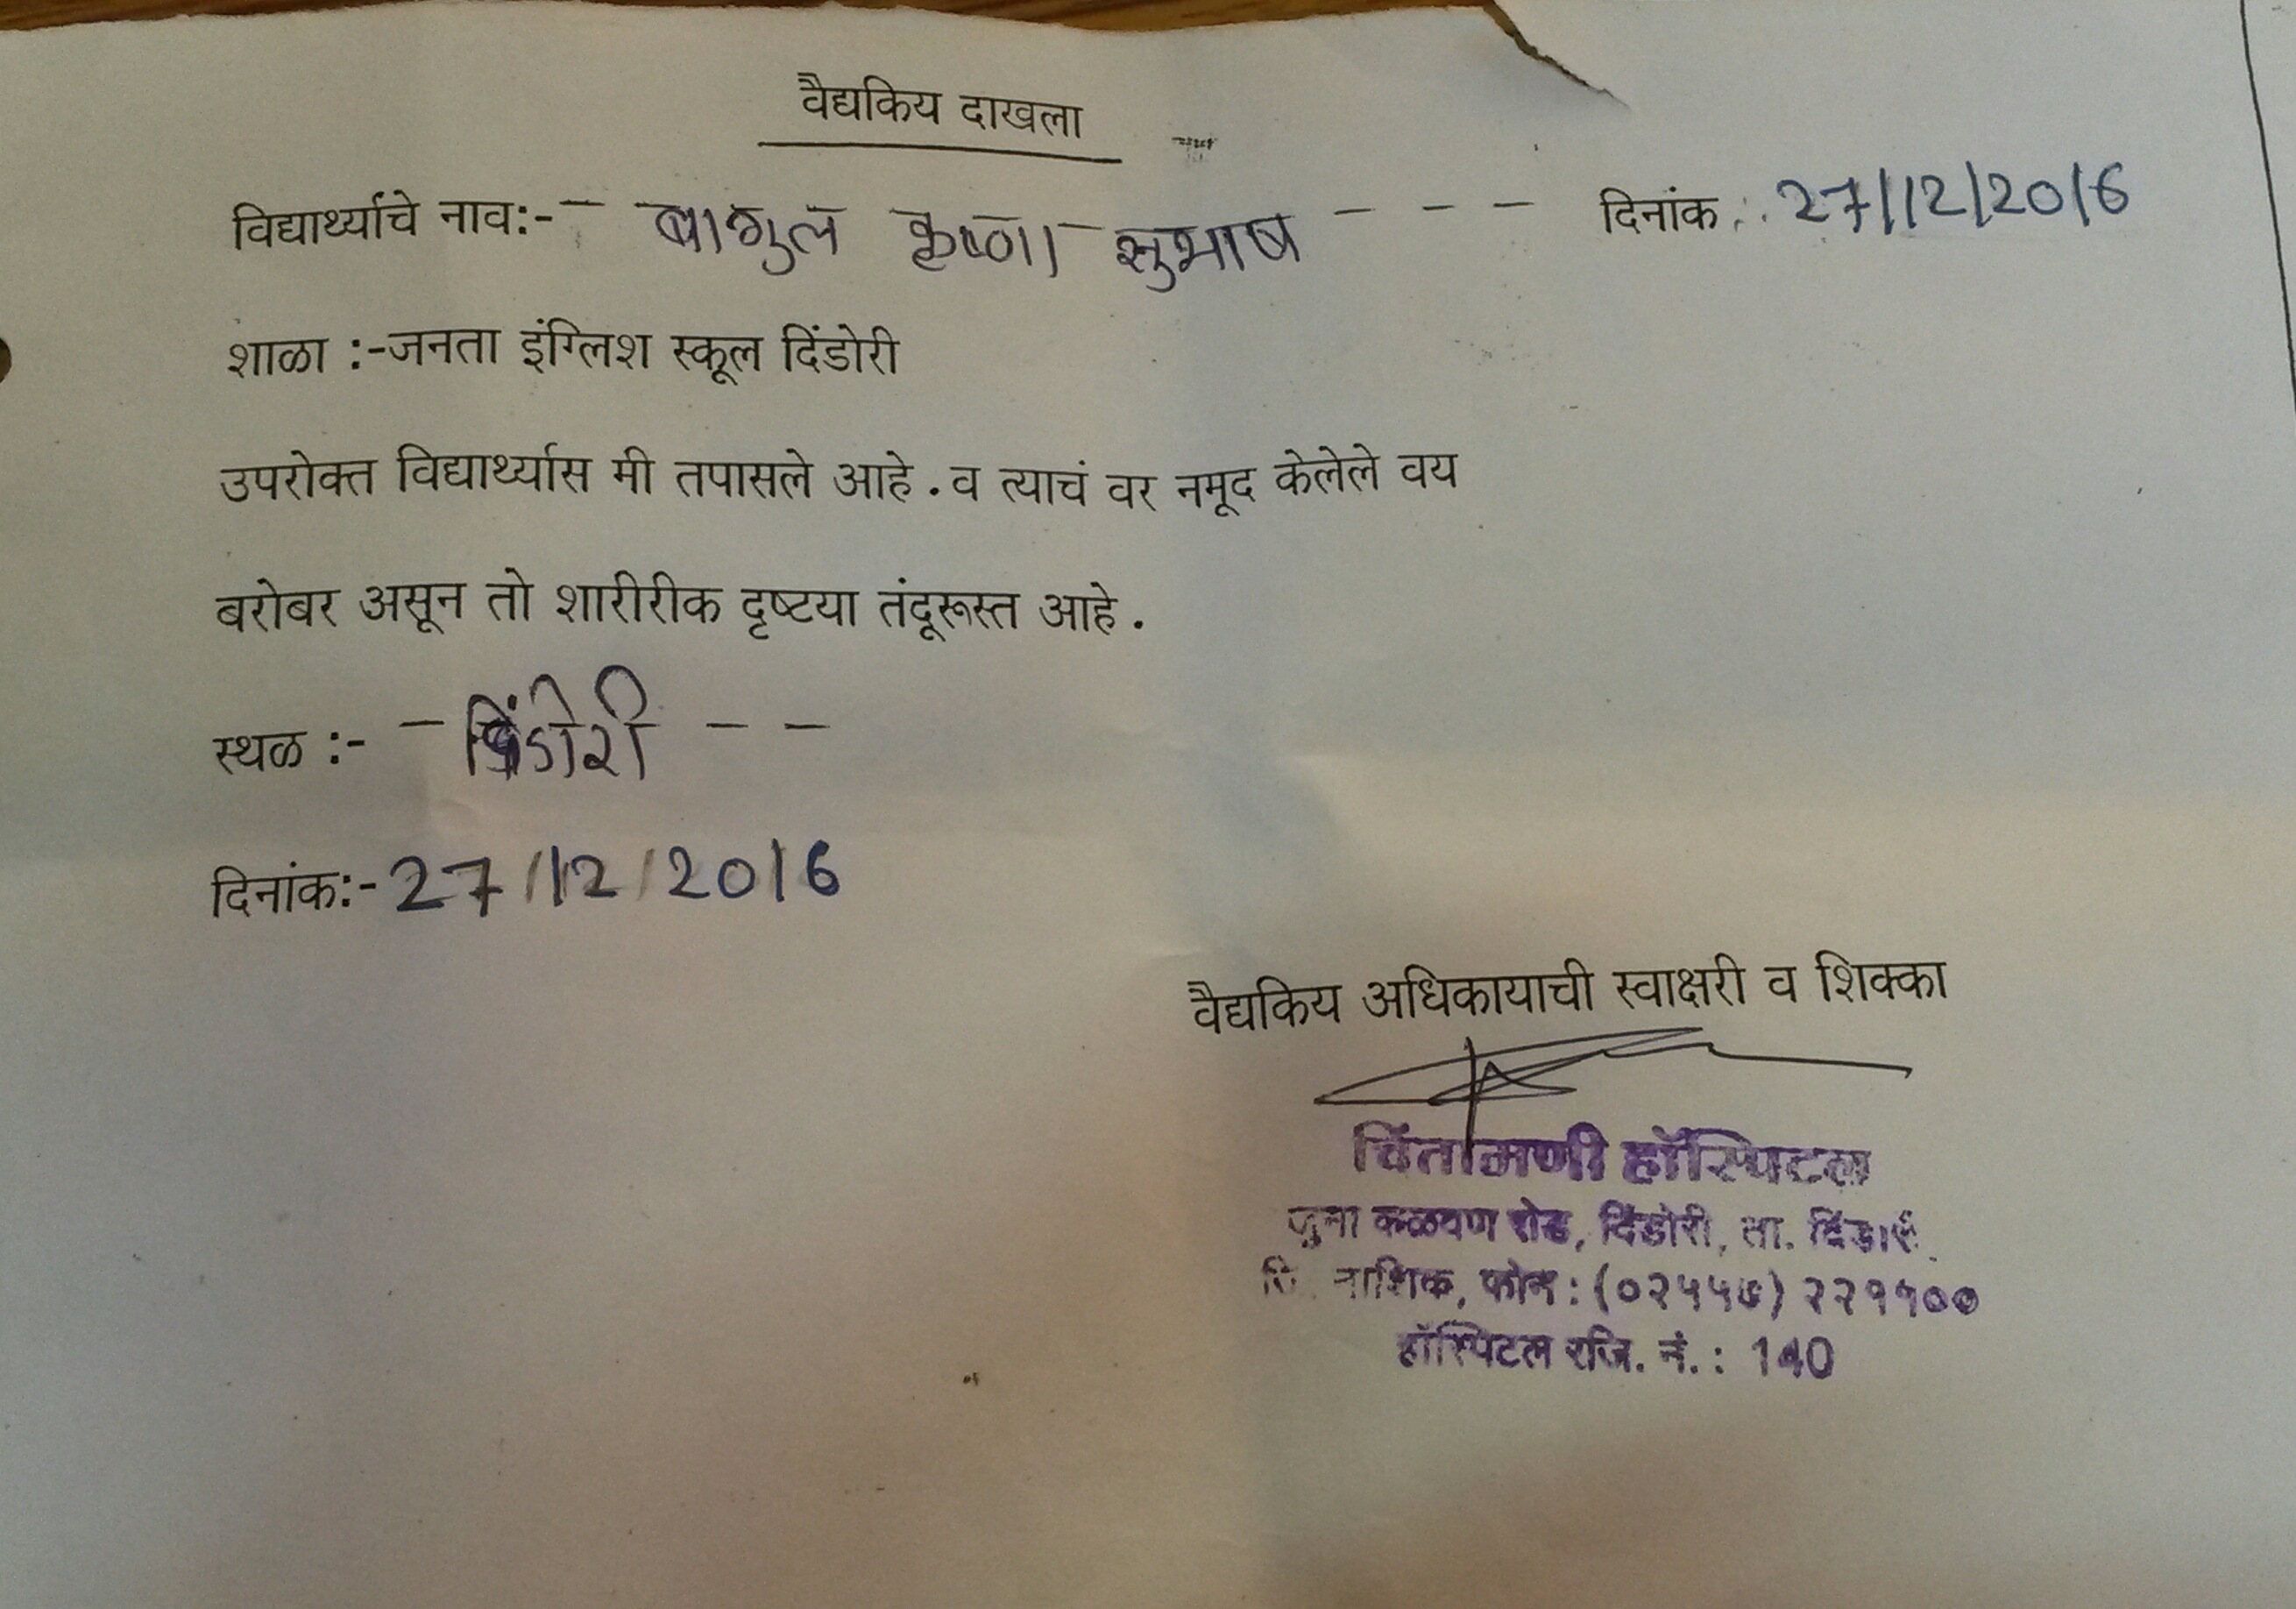 वैद्यकिय दाखला
विद्यार्थ्याचे नाव:- बागुल कृष्णा सुभाष दिनांक : 27/12/2016
शाळा :-जनता इंग्लिश स्कूल दिंडोरी
उपरोक्त विद्यार्थ्यास मी तपासले आहे.व त्याचं वर नमूद केलेले वय
बरोबर असून तो शारीरीक दृष्टया तंदूरूस्त आहे.
स्थळ :- दिंडोरी
दिनांक:- 27/12/2016
वैद्यकिय अधिकायाची स्वाक्षरी व शिक्का
चिंतामणी हॉस्पिटल
जुना कळवण रोड, दिंडोरी, ता. दिंडोरी,
जि. नाशिक, फोन : (०२५५७) २२११००
हॉस्पिटल रजि. नं. : 140